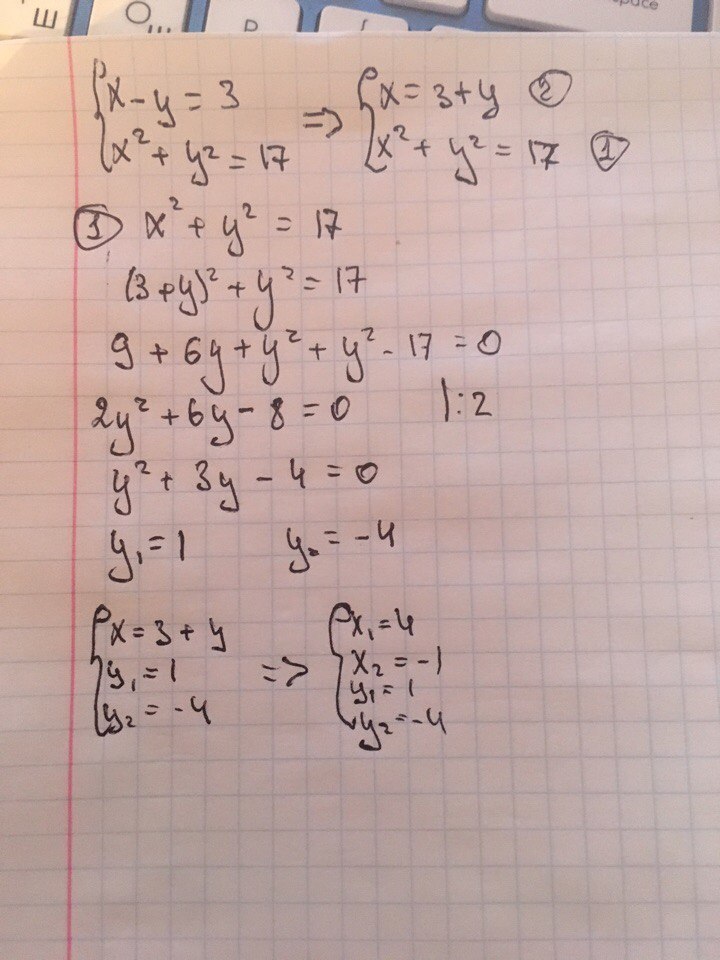 Ш О Щ space
{ x - y = 3 => { x = 3 + y ②
x² + y² = 17 x² + y² = 17 ①
① x² + y² = 17
(3 + y)² + y² = 17
9 + 6y + y² + y² - 17 = 0
2y² + 6y - 8 = 0 |:2
y² + 3y - 4 = 0
y₁ = 1 y₂ = -4
{ x = 3 + y => { x₁ = 4
y₁ = 1 x₂ = -1
y₂ = -4 y₁ = 1
y₂ = -4